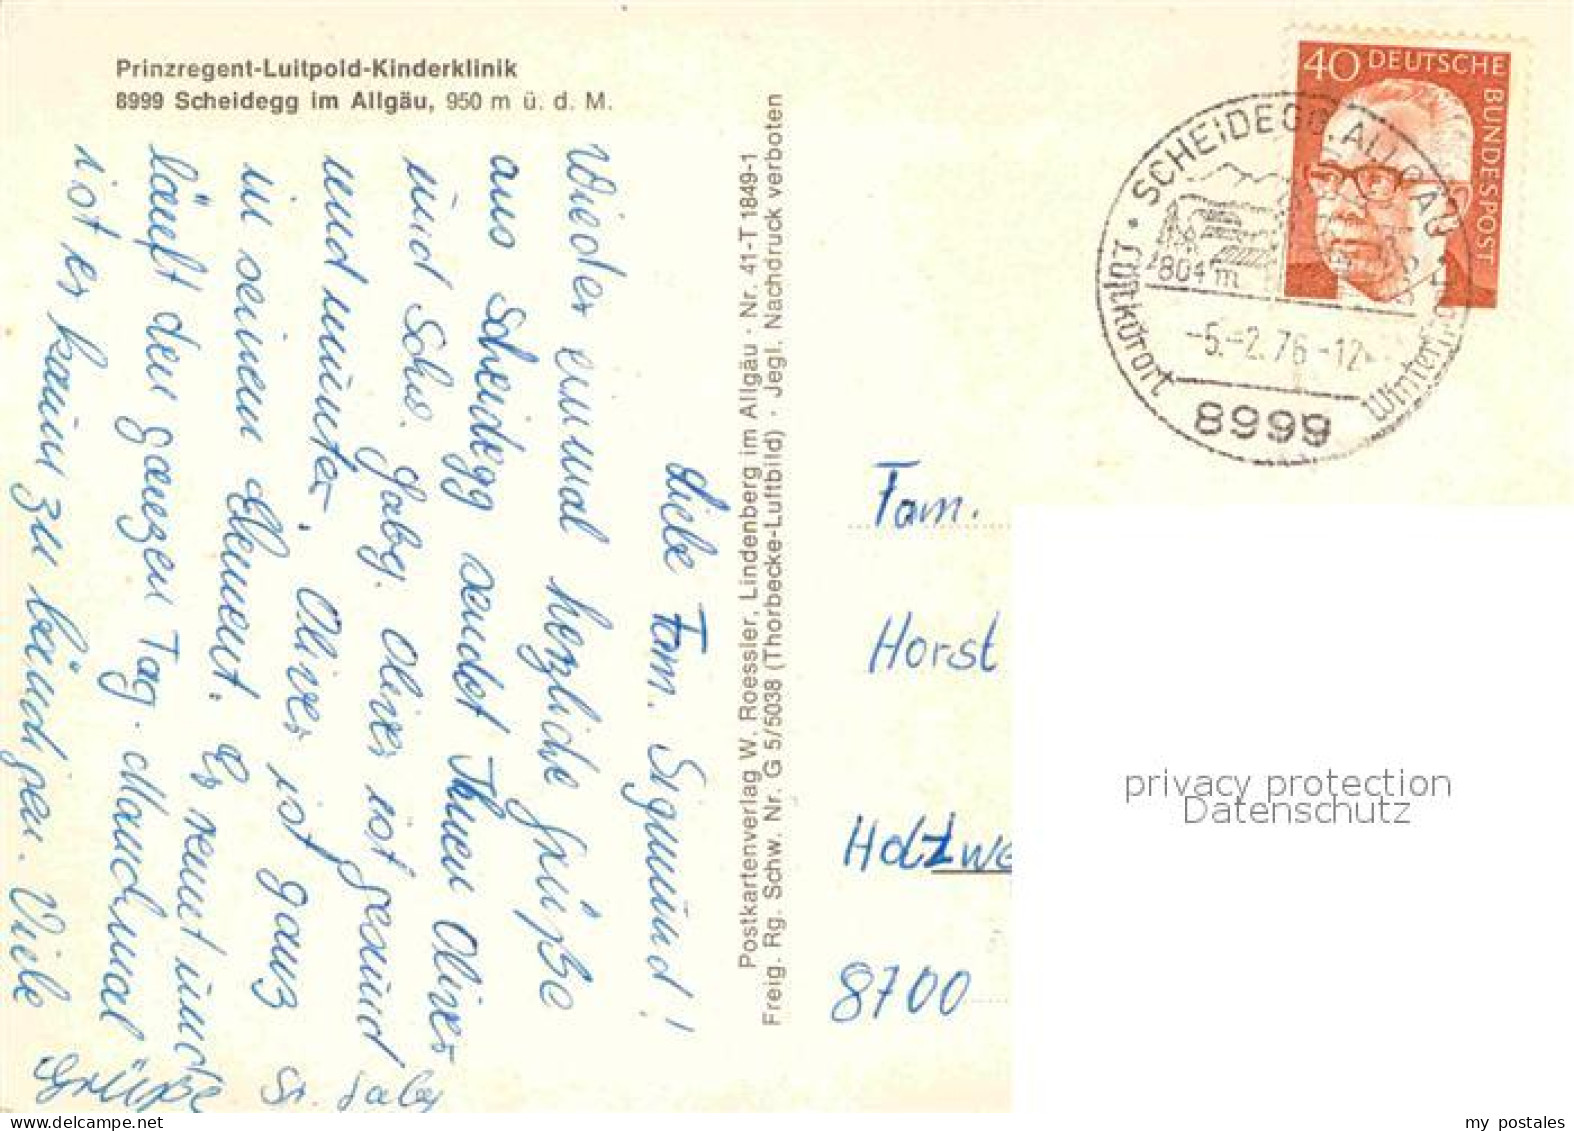 Prinzregent-Luitpold-Kinderklinik
8999 Scheidegg im Allgäu, 950 m ü. d. M.
Liebe Fam. Sigmund!
Wieder einmal herzliche Grüße
aus Scheidegg sendet Ihnen Oliver
und Schw. Gaby. Oliver ist gesund
und munter. Oliver ist ganz
in seinem Element. Er rennt und
läuft den ganzen Tag. Manchmal
ist er kaum zu bändigen. Viele
Grüße Sr. Gaby
Postkartenverlag W. Roessler, Lindenberg im Allgäu · Nr. 41-T 1849-1
Freig. Rg. Schw. Nr. G 5/5038 (Thorbecke-Luftbild) · Jegl. Nachdruck verboten
40 DEUTSCHE
BUNDESPOST
SCHEIDEGG, ALLGÄU
804 m
-5.-2.76-12
Luftkurort
8999
Fam.
Horst
Holzwe
8700
privacy protection
Datenschutz
my postales